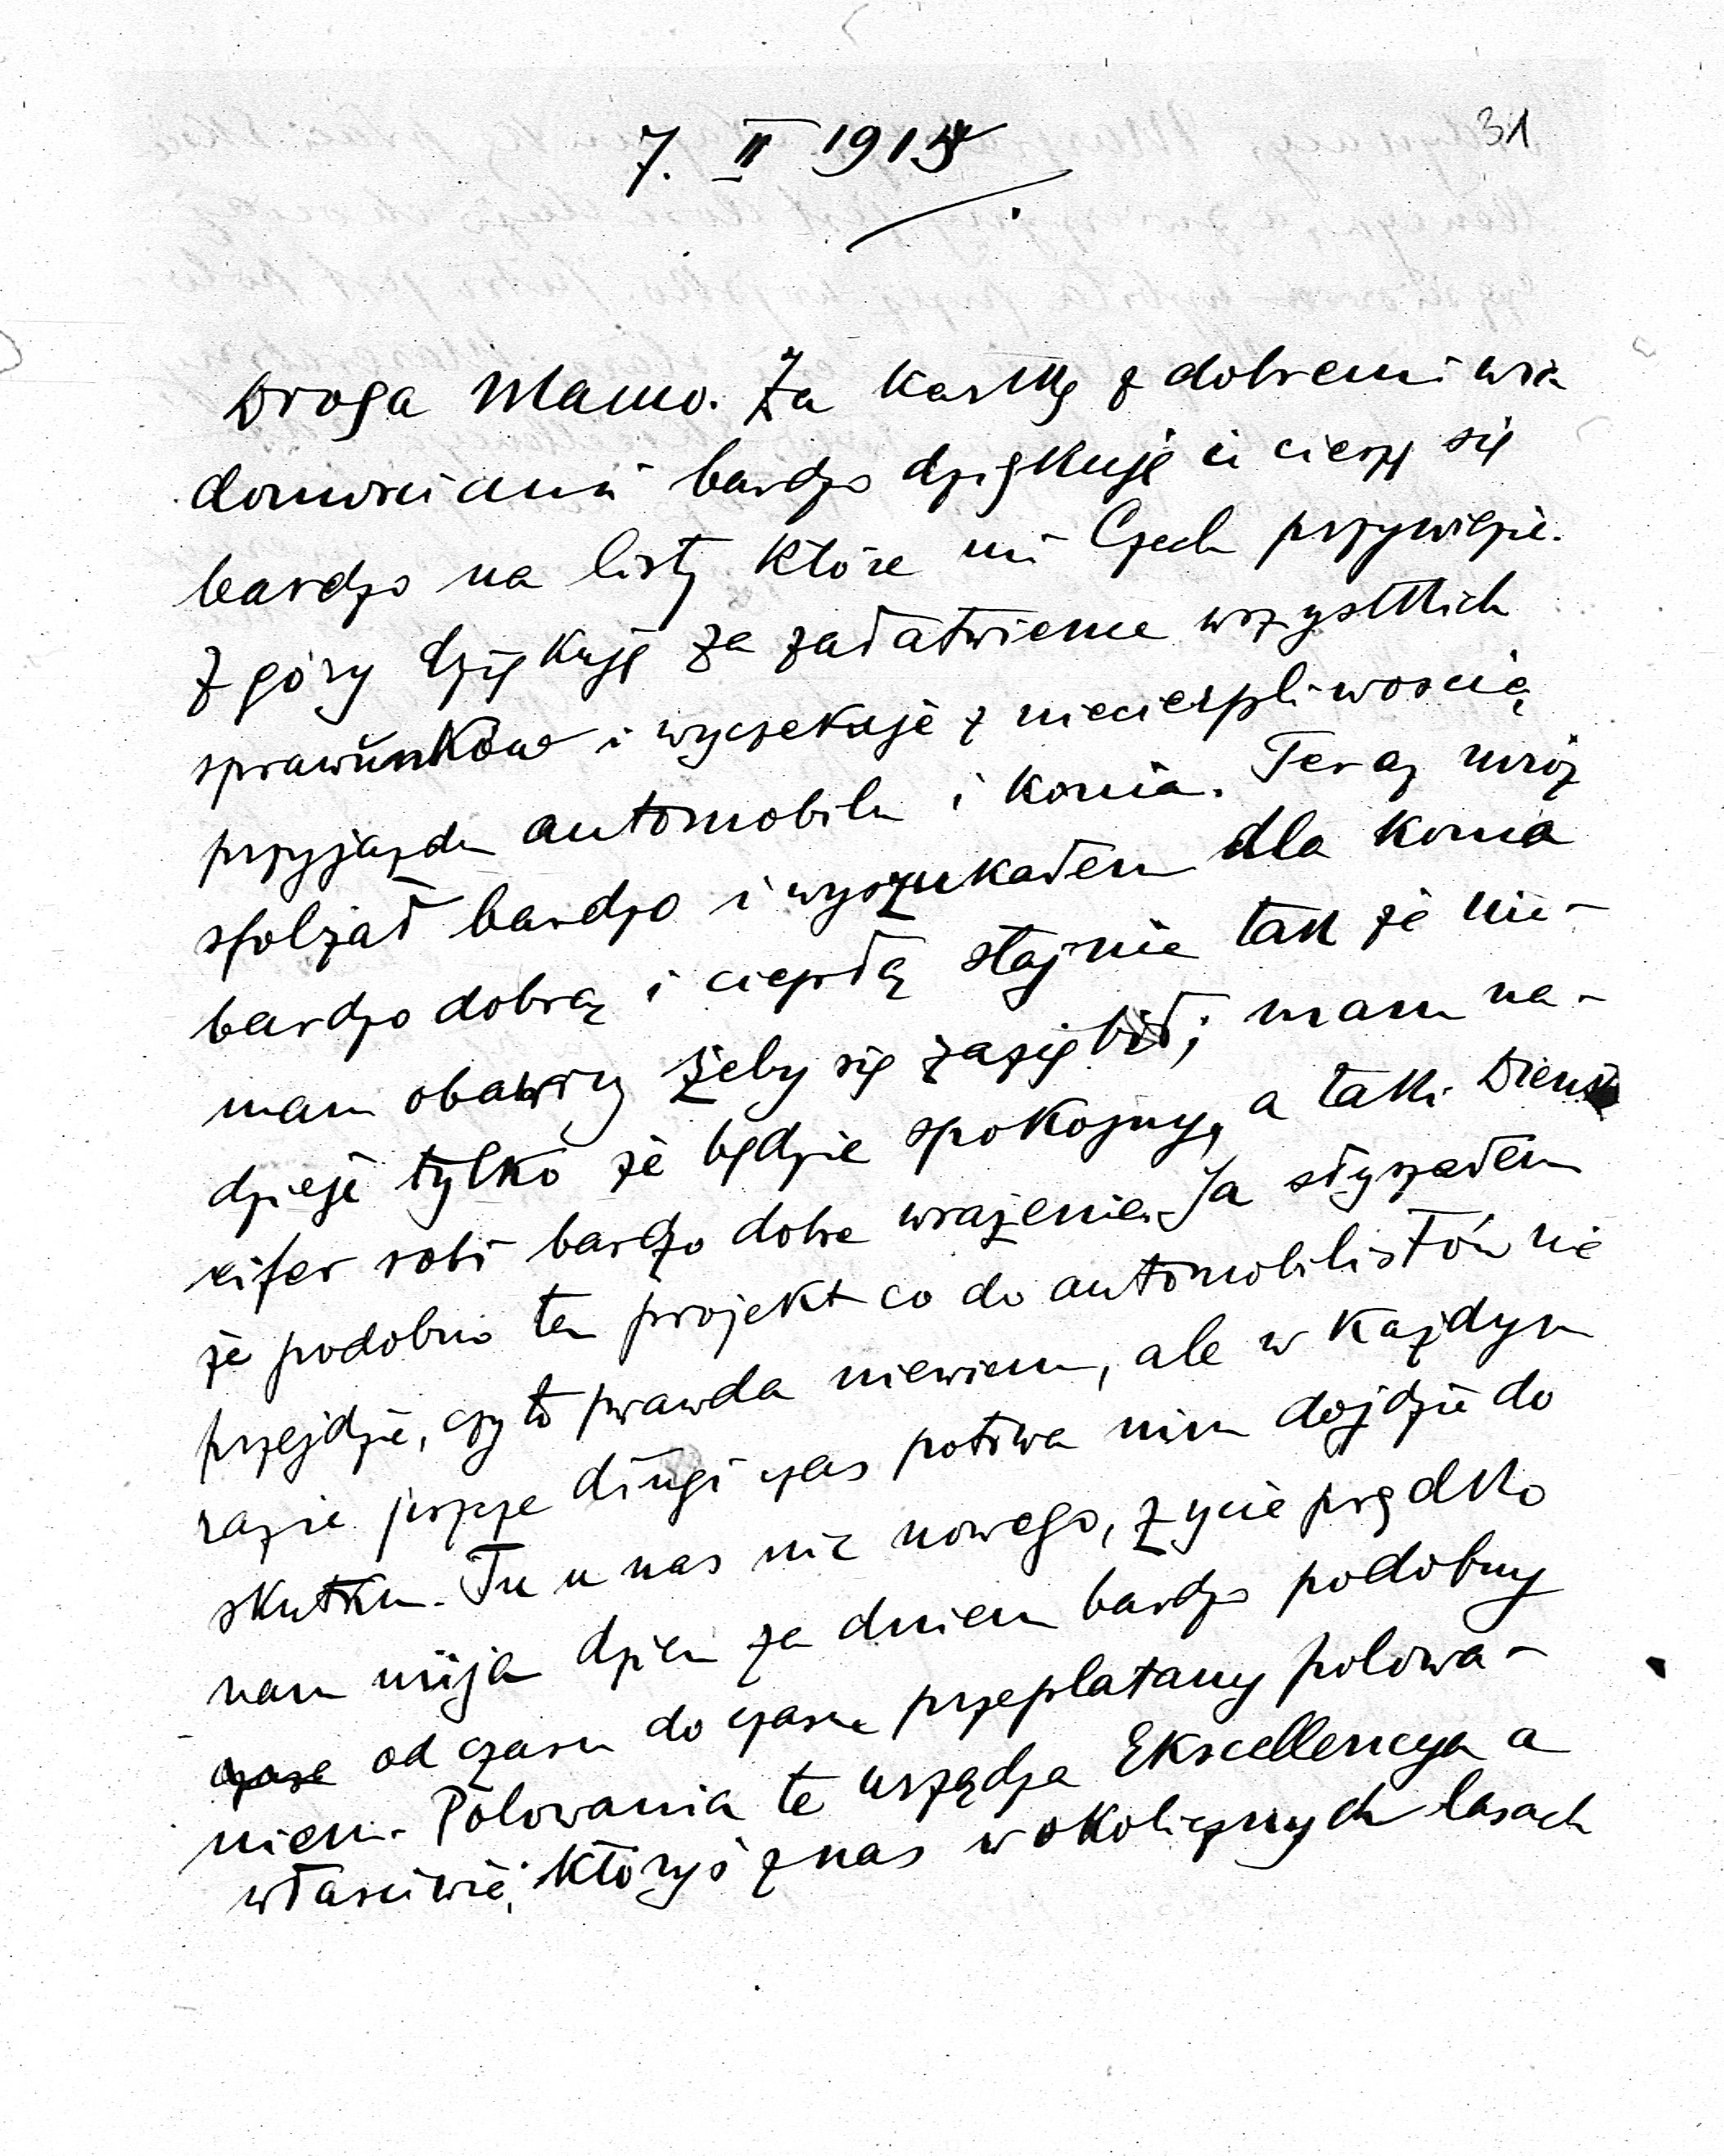 31
7. II 1915
Droga Mamo. Za kartkę z dobremi wia
domosciami bardzo dziękuję i cieszę się
bardzo na listy które mi Czech przywiezie.
Z góry dziękuję za załatwienie wszystkich
sprawunków i wyczekuje z niecierpliwoscią
przyjazdu automobilu i konia. Teraz mróz
sfolżał bardzo i wyszukałem dla konia
bardzo dobrą i ciepłą stajnie tak że nie-
mam obawy żeby się zaziębił; mam na-
dzieje tylko że będzie spokojny, a taki Dienst
eifer robi bardzo dobre wrażenie. Ja słyszałem
że podobno ten projekt co do automobilistów nie
przejdzie, czy to prawda niewiem, ale w każdym
razie jeszcze długi czas potrwa nim dojdzie do
skutku. Tu u nas nic nowego, życie prędko
nam mija dzien za dniem bardzo podobny
od czasu do czasu przeplatany polowa-
niem. Polowania te urządza Ekscellencya a
własciwie, któryś z nas w okolicznych lasach